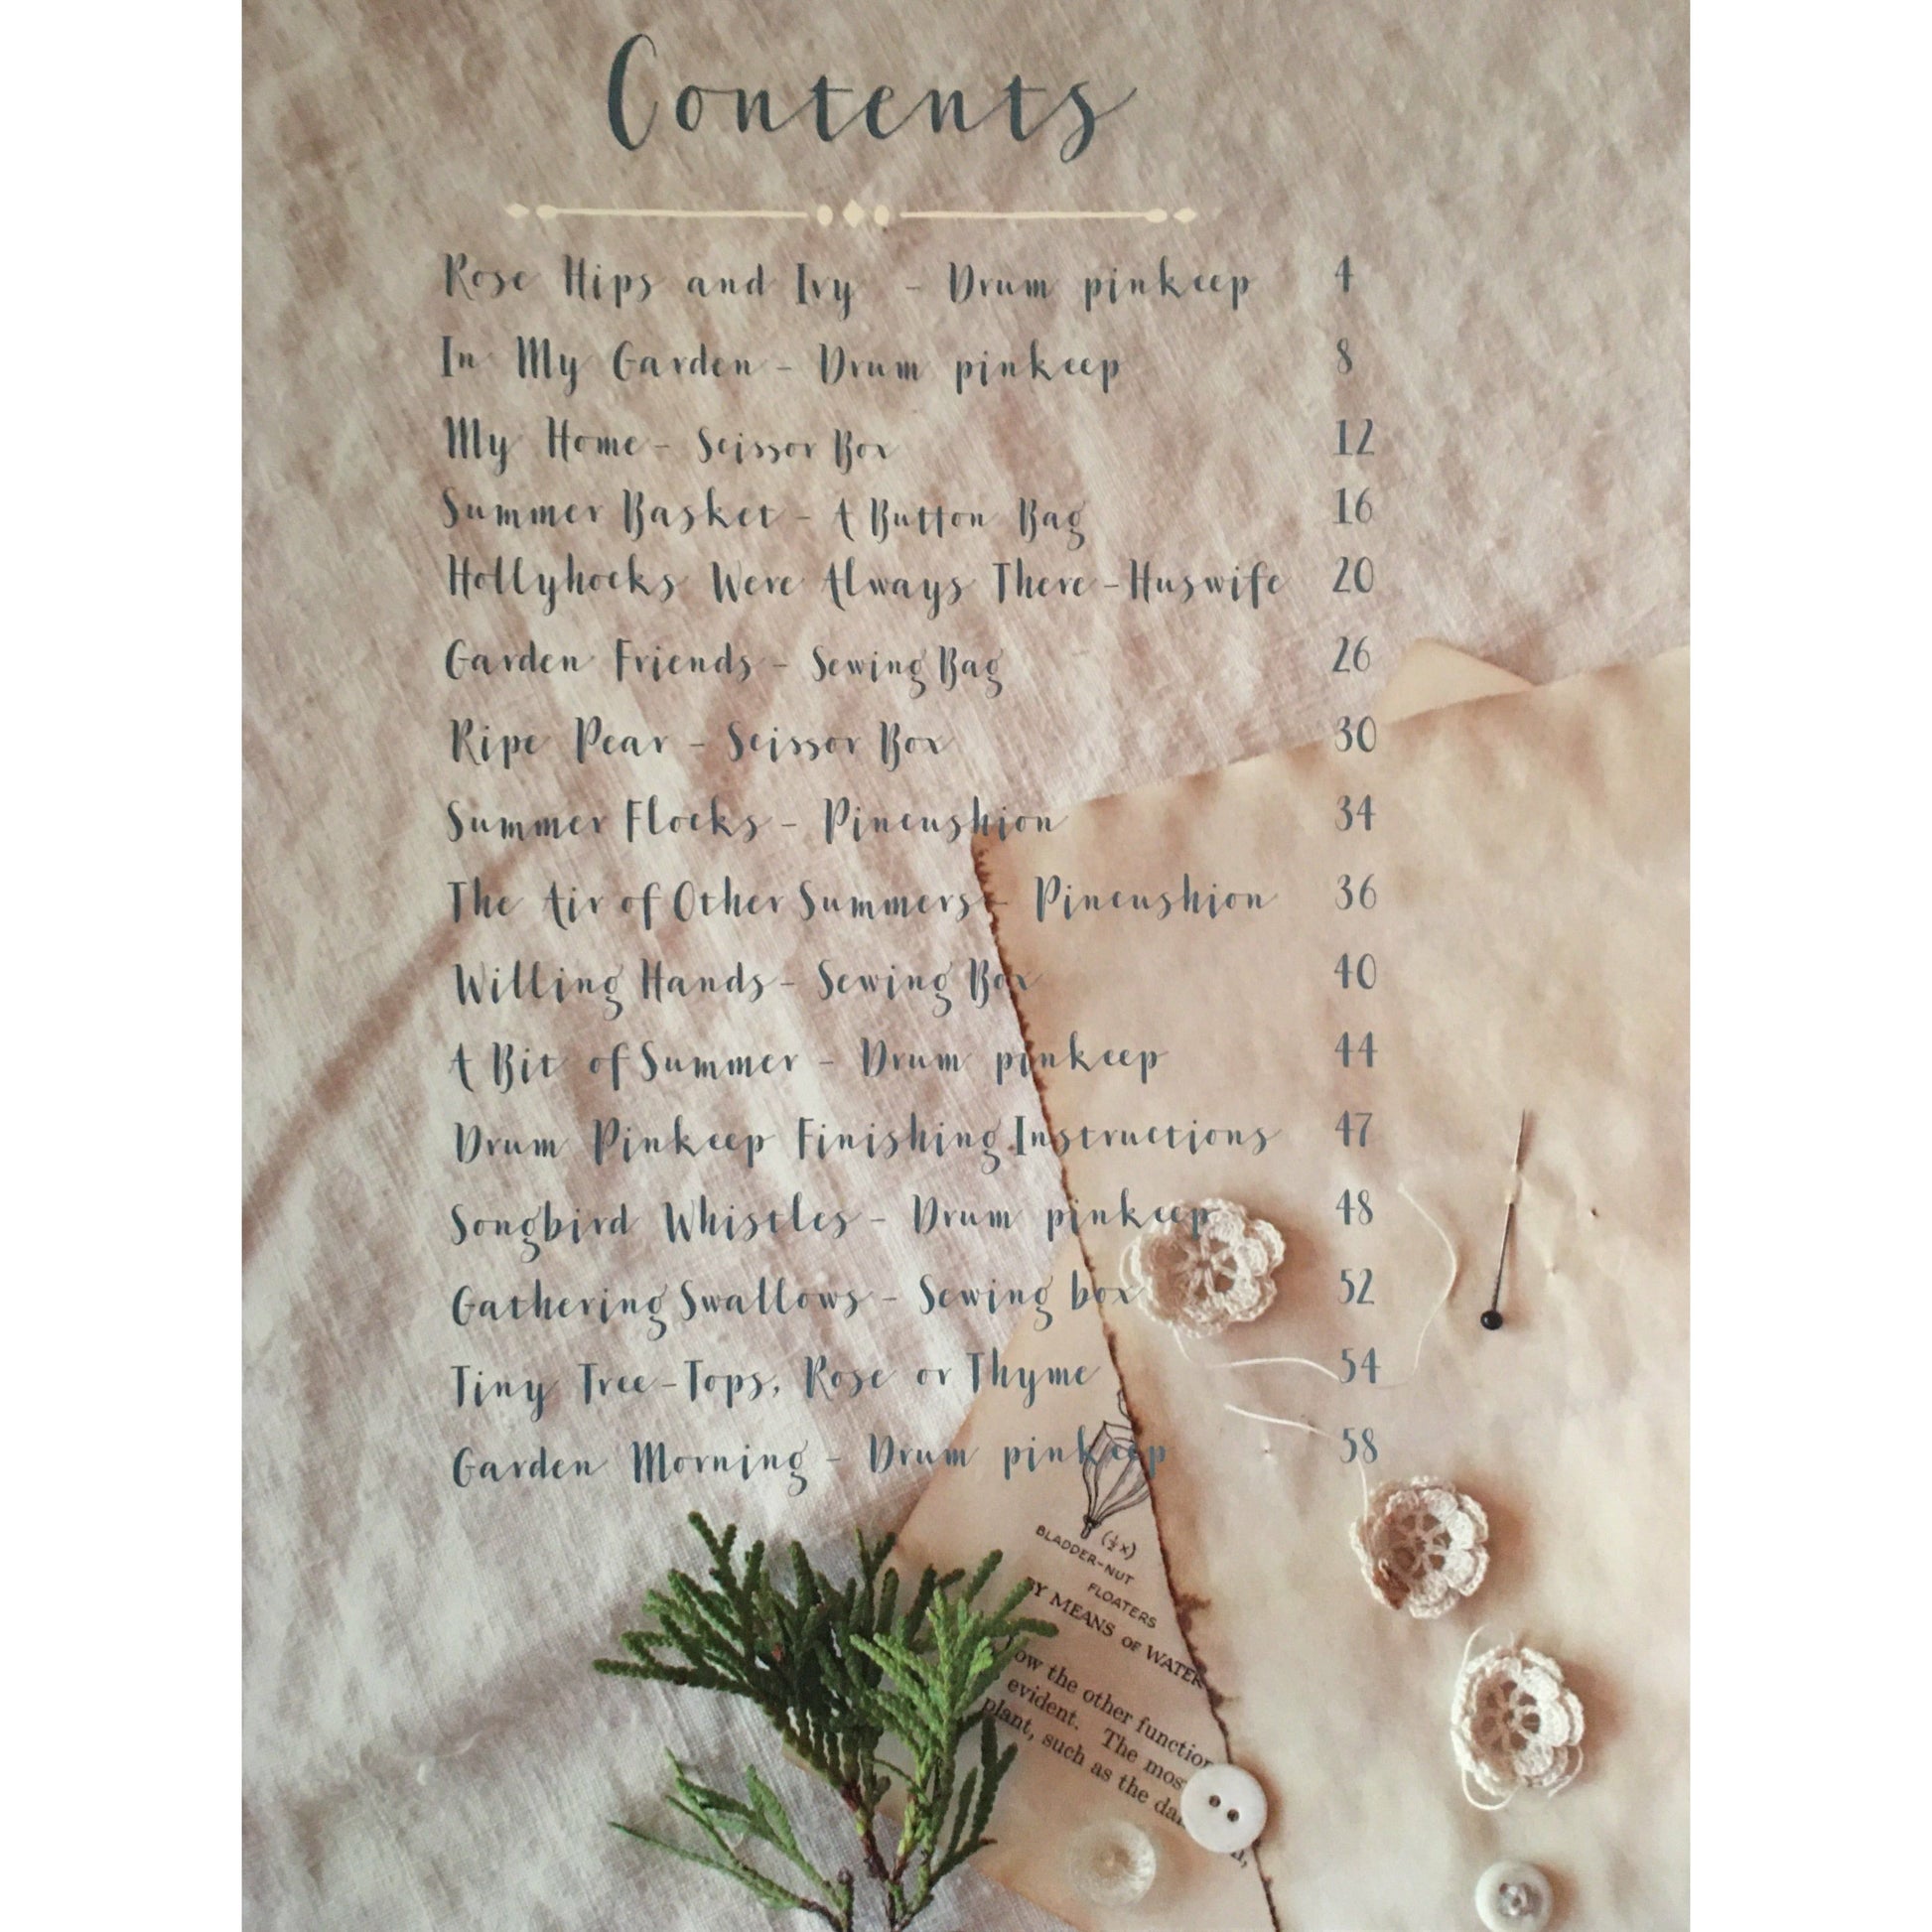 Contents
Rose Hips and Ivy - Drum pinkeep 4
In My Garden - Drum pinkeep 8
My Home - Scissor Box 12
Summer Basket - A Button Bag 16
Hollyhocks Were Always There - Huswife 20
Garden Friends - Sewing Bag 26
Ripe Pear - Scissor Box 30
Summer Flocks - Pincushion 34
The Air of Other Summers - Pincushion 36
Willing Hands - Sewing Box 40
A Bit of Summer - Drum pinkeep 44
Drum Pinkeep Finishing Instructions 47
Songbird Whistles - Drum pinkeep 48
Gathering Swallows - Sewing box 52
Tiny Tree-Tops, Rose or Thyme 54
Garden Morning - Drum pinkeep 58
(½x)
BLADDER-NUT
FLOATERS
BY MEANS OF WATER
ow the other function
evident. The mos
plant, such as the da